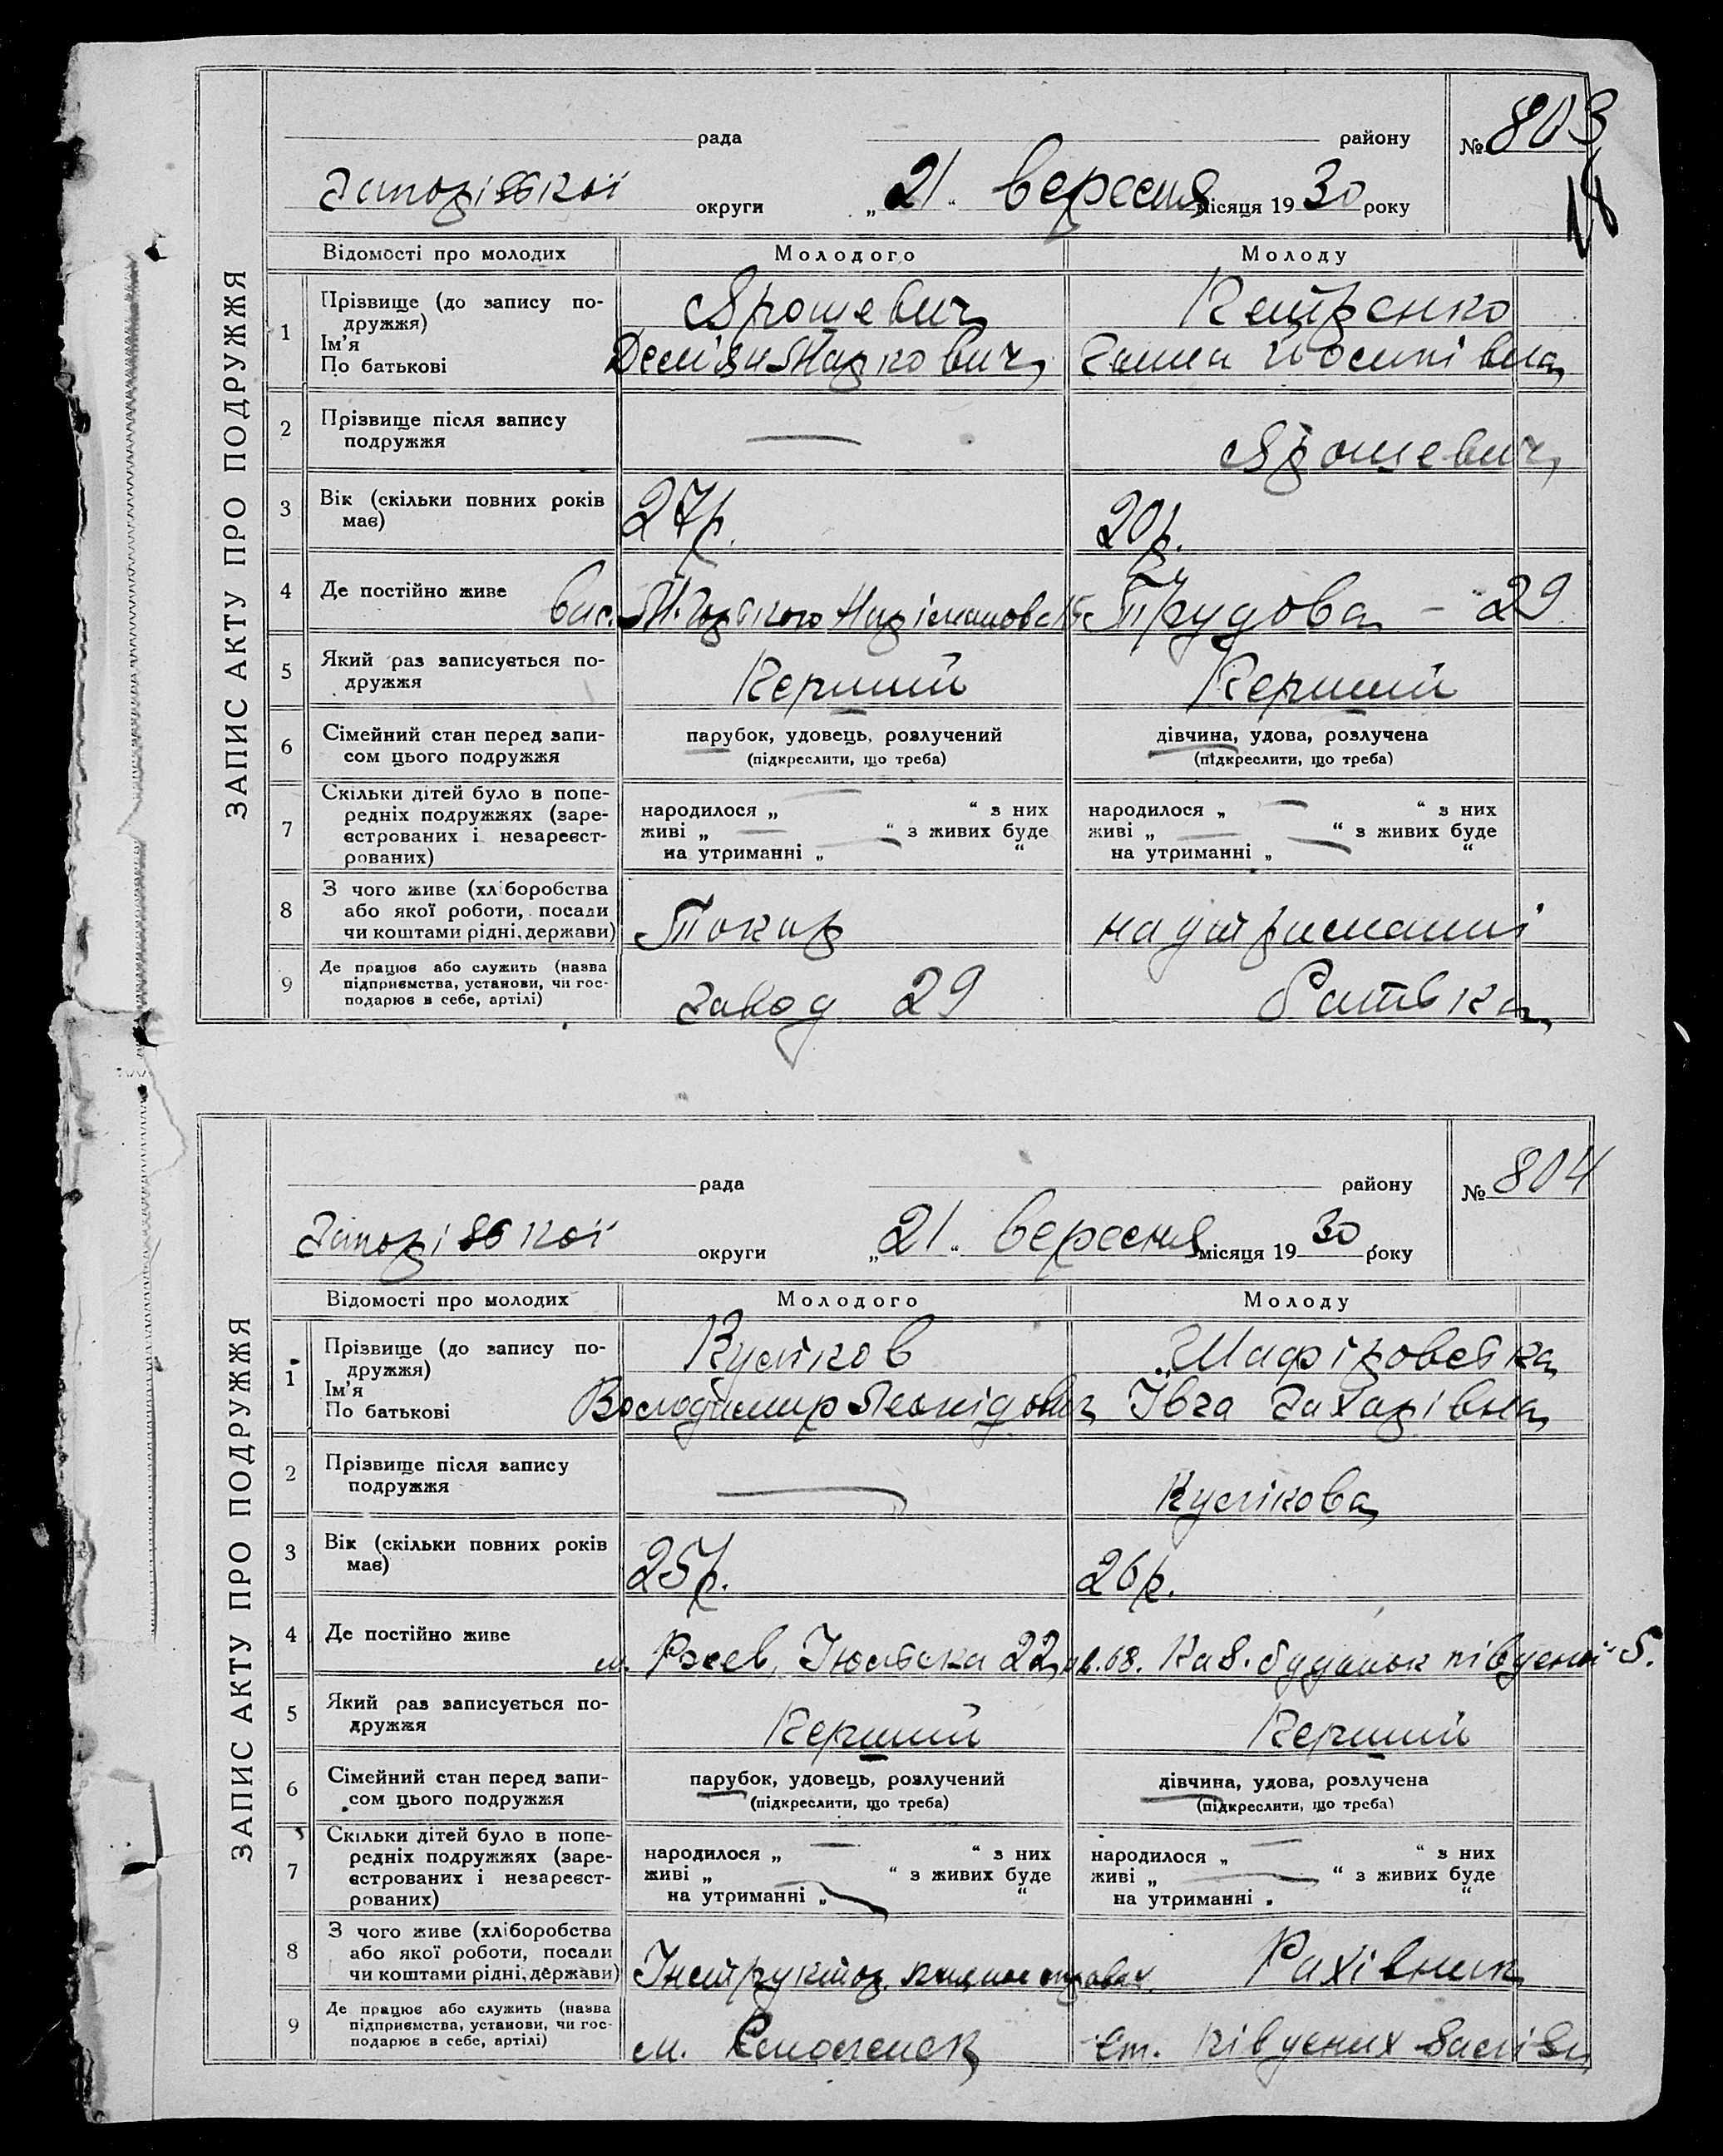 ЗАПИС АКТУ ПРО ПОДРУЖЖЯ
рада району № 803
Запорізької округи „21“ вересня місяця 1930 року
Відомості про молодих Молодого Молоду
1 Прізвище (до запису по-
дружжя) Ярошевич Петренко
Ім'я
По батькові Дем'ян Маркович Ганна Йосипівна
2 Прізвище після запису
подружжя — Ярошевич
3 Вік (скільки повних років
має) 27 р. 20 р.
4 Де постійно живе вис. М. Трудова – 29
5 Який раз записується по-
дружжя Перший Перший
6 Сімейний стан перед запи-
сом цього подружжя
парубок, удовець, розлучений дівчина, удова, розлучена
(підкреслити, що треба) (підкреслити, що треба)
7 Скільки дітей було в попе-
редніх подружжях (заре-
єстрованих і незареєст-
рованих)
народилося „ — “ з них народилося „ — “ з них
живі „ — “ з живих буде живі „ — “ з живих буде
на утриманні „ — “ на утриманні „ — “
8 З чого живе (хліборобства
або якої роботи, посади
чи коштами рідні, держави) Токар на утриманні
9 Де працює або служить (назва
підприємства, установи, чи гос-
подарює в себе, артілі) Завод 29 батька
ЗАПИС АКТУ ПРО ПОДРУЖЖЯ
рада району № 804
Запорізької округи „21“ вересня місяця 1930 року
Відомості про молодих Молодого Молоду
1 Прізвище (до запису по-
дружжя) Куліков Шафіровська
Ім'я
По батькові Володимир Леонідович Івга Захарівна
2 Прізвище після запису
подружжя — Кулікова
3 Вік (скільки повних років
має) 25 р. 26 р.
4 Де постійно живе м. 22, кв. 68. будинок південної 5.
5 Який раз записується по-
дружжя Перший Перший
6 Сімейний стан перед запи-
сом цього подружжя
парубок, удовець, розлучений дівчина, удова, розлучена
(підкреслити, що треба) (підкреслити, що треба)
7 Скільки дітей було в попе-
редніх подружжях (заре-
єстрованих і незареєст-
рованих)
народилося „ — “ з них народилося „ — “ з них
живі „ “ з живих буде живі „ — “ з живих буде
на утриманні „ — “ на утриманні „
8 З чого живе (хліборобства
або якої роботи, посади
чи коштами рідні, держави) Інструктор Рахівник
9 Де працює або служить (назва
підприємства, установи, чи гос-
подарює в себе, артілі) м. Смоленск ст. Південих